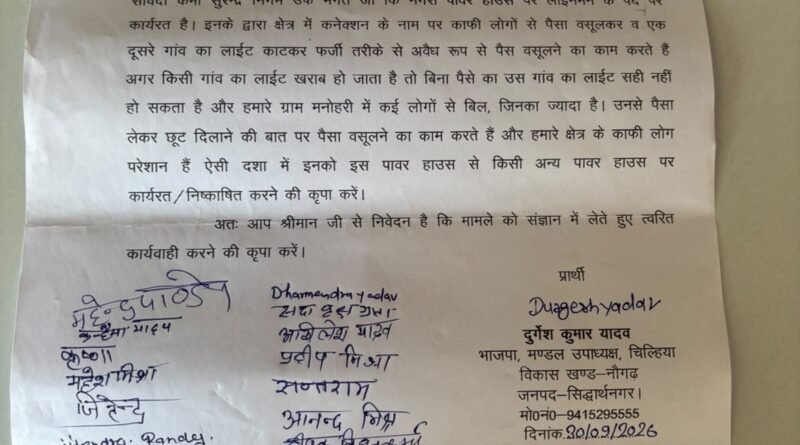 संविदा कर्मी सुरेन्द्र निगम उर्फ मंगत जो कि नगरा पावर हाउस पर लाइनमैन के पद पर
कार्यरत है। इनके द्वारा क्षेत्र में कनेक्शन के नाम पर काफी लोगों से पैसा वसूलकर व एक
दूसरे गांव का लाईट काटकर फर्जी तरीके से अवैध रूप से पैस वसूलने का काम करते हैं
अगर किसी गांव का लाईट खराब हो जाता है तो बिना पैसे का उस गांव का लाईट सही नहीं
हो सकता है और हमारे ग्राम मनोहरी में कई लोगों से बिल, जिनका ज्यादा है। उनसे पैसा
लेकर छूट दिलाने की बात पर पैसा वसूलने का काम करते हैं और हमारे क्षेत्र के काफी लोग
परेशान हैं ऐसी दशा में इनको इस पावर हाउस से किसी अन्य पावर हाउस पर
कार्यरत/निष्काषित करने की कृपा करें।
अतः आप श्रीमान जी से निवेदन है कि मामले को संज्ञान में लेते हुए त्वरित
कार्यवाही करने की कृपा करें।
प्रार्थी
Durgesh yadav
दुर्गेश कुमार यादव
भाजपा, मण्डल उपाध्यक्ष, चिल्हिया
विकास खण्ड–नौगढ़
जनपद–सिद्धार्थनगर।
मो0नं0–9415295555
दिनांक 30/09/2026
महेन्द्र पाण्डेय
यादव
कृष्णा
महेश मिश्रा
जितेन्द्र
Pandey
Dharmendra yadav
अखिलेश यादव
प्रदीप मिश्रा
सन्तराम
आनन्द मिश्र